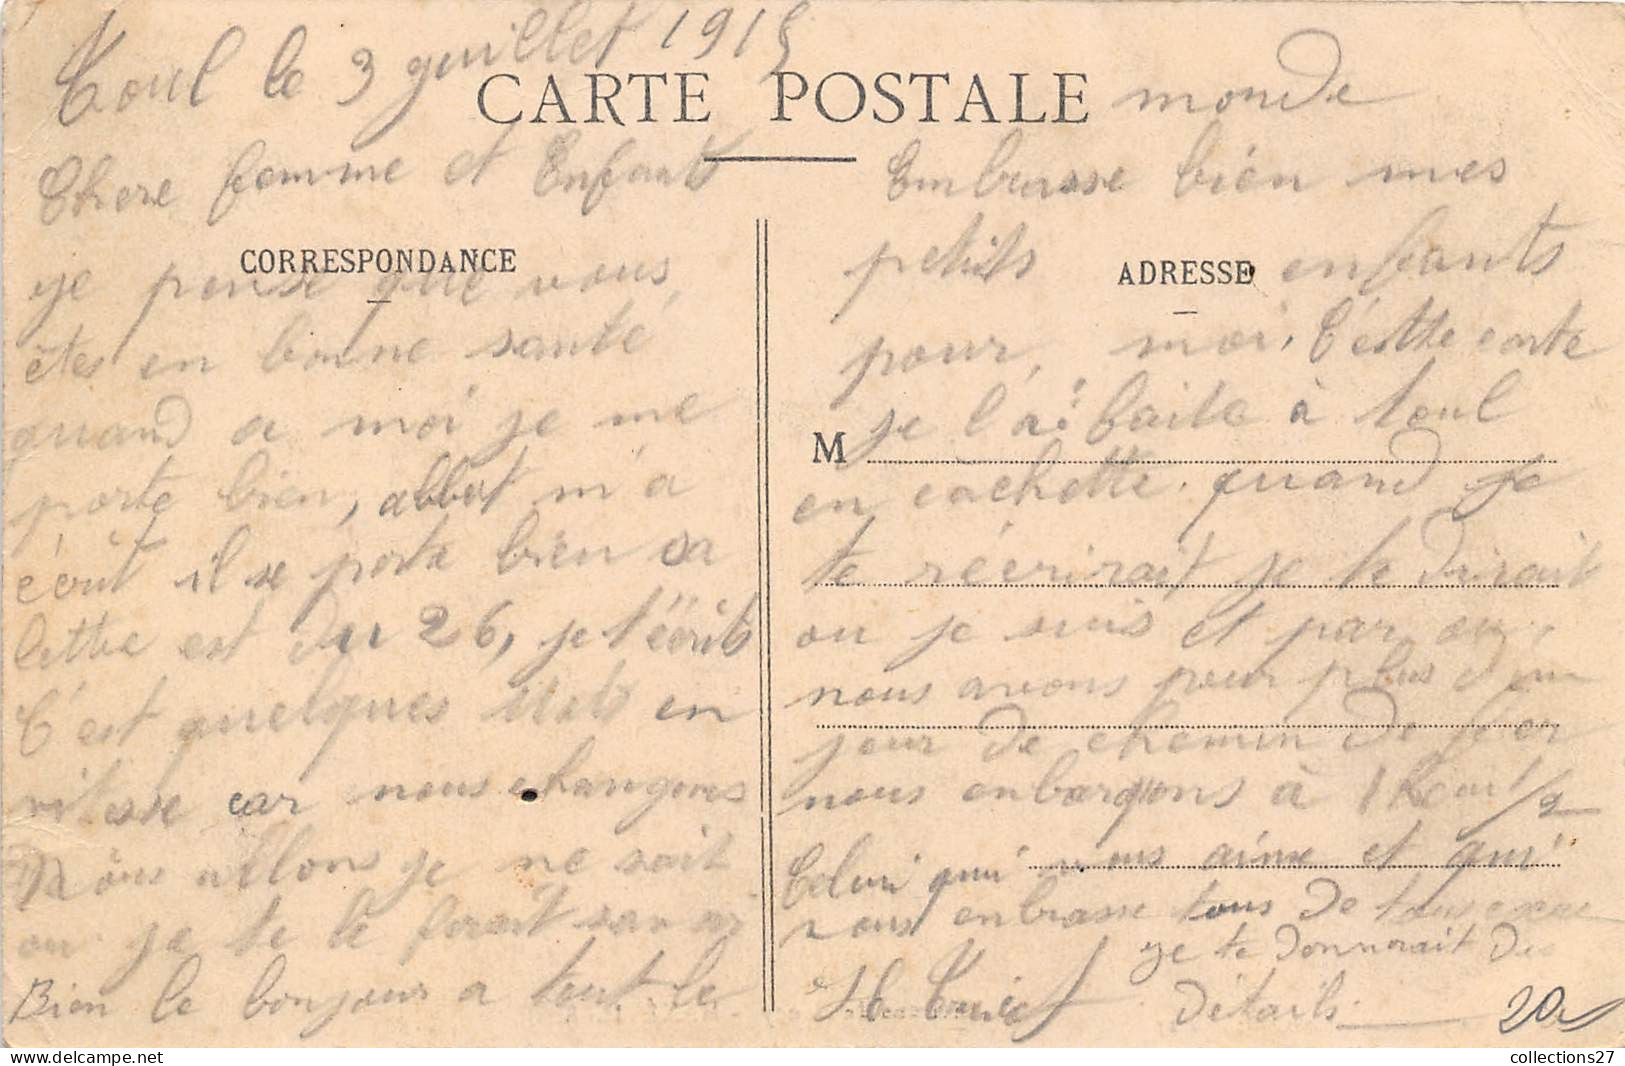 Toul le 3 juillet 1915
CARTE POSTALE
Chere femme et Enfants
CORRESPONDANCE
je pense que vous
êtes en bonne santé
quand a moi je me
porte bien, abbat m'a
écrit il se porte bien sa
lettre est du 26, je t'écrits
C'est quelques mots en
vitesse car nous changons
Nous allons je ne sait
ou je te le ferait savoir
Bien le bonjour a tout le
monde
Embrasse bien mes
petits enfants
ADRESSE
pour, moi, C'estte carte
M
je l'ai faite à toul
en cachette. quand je
te réecrirait je te dirait
ou je suis et par ou
nous avons pour plus d'un
jour de chemin de fer
nous enbarquons à 1 heur 1/2
Celui qui vous aime et qui
vous enbrasse tous de tous
je te donnerait des
détails
20
collections27